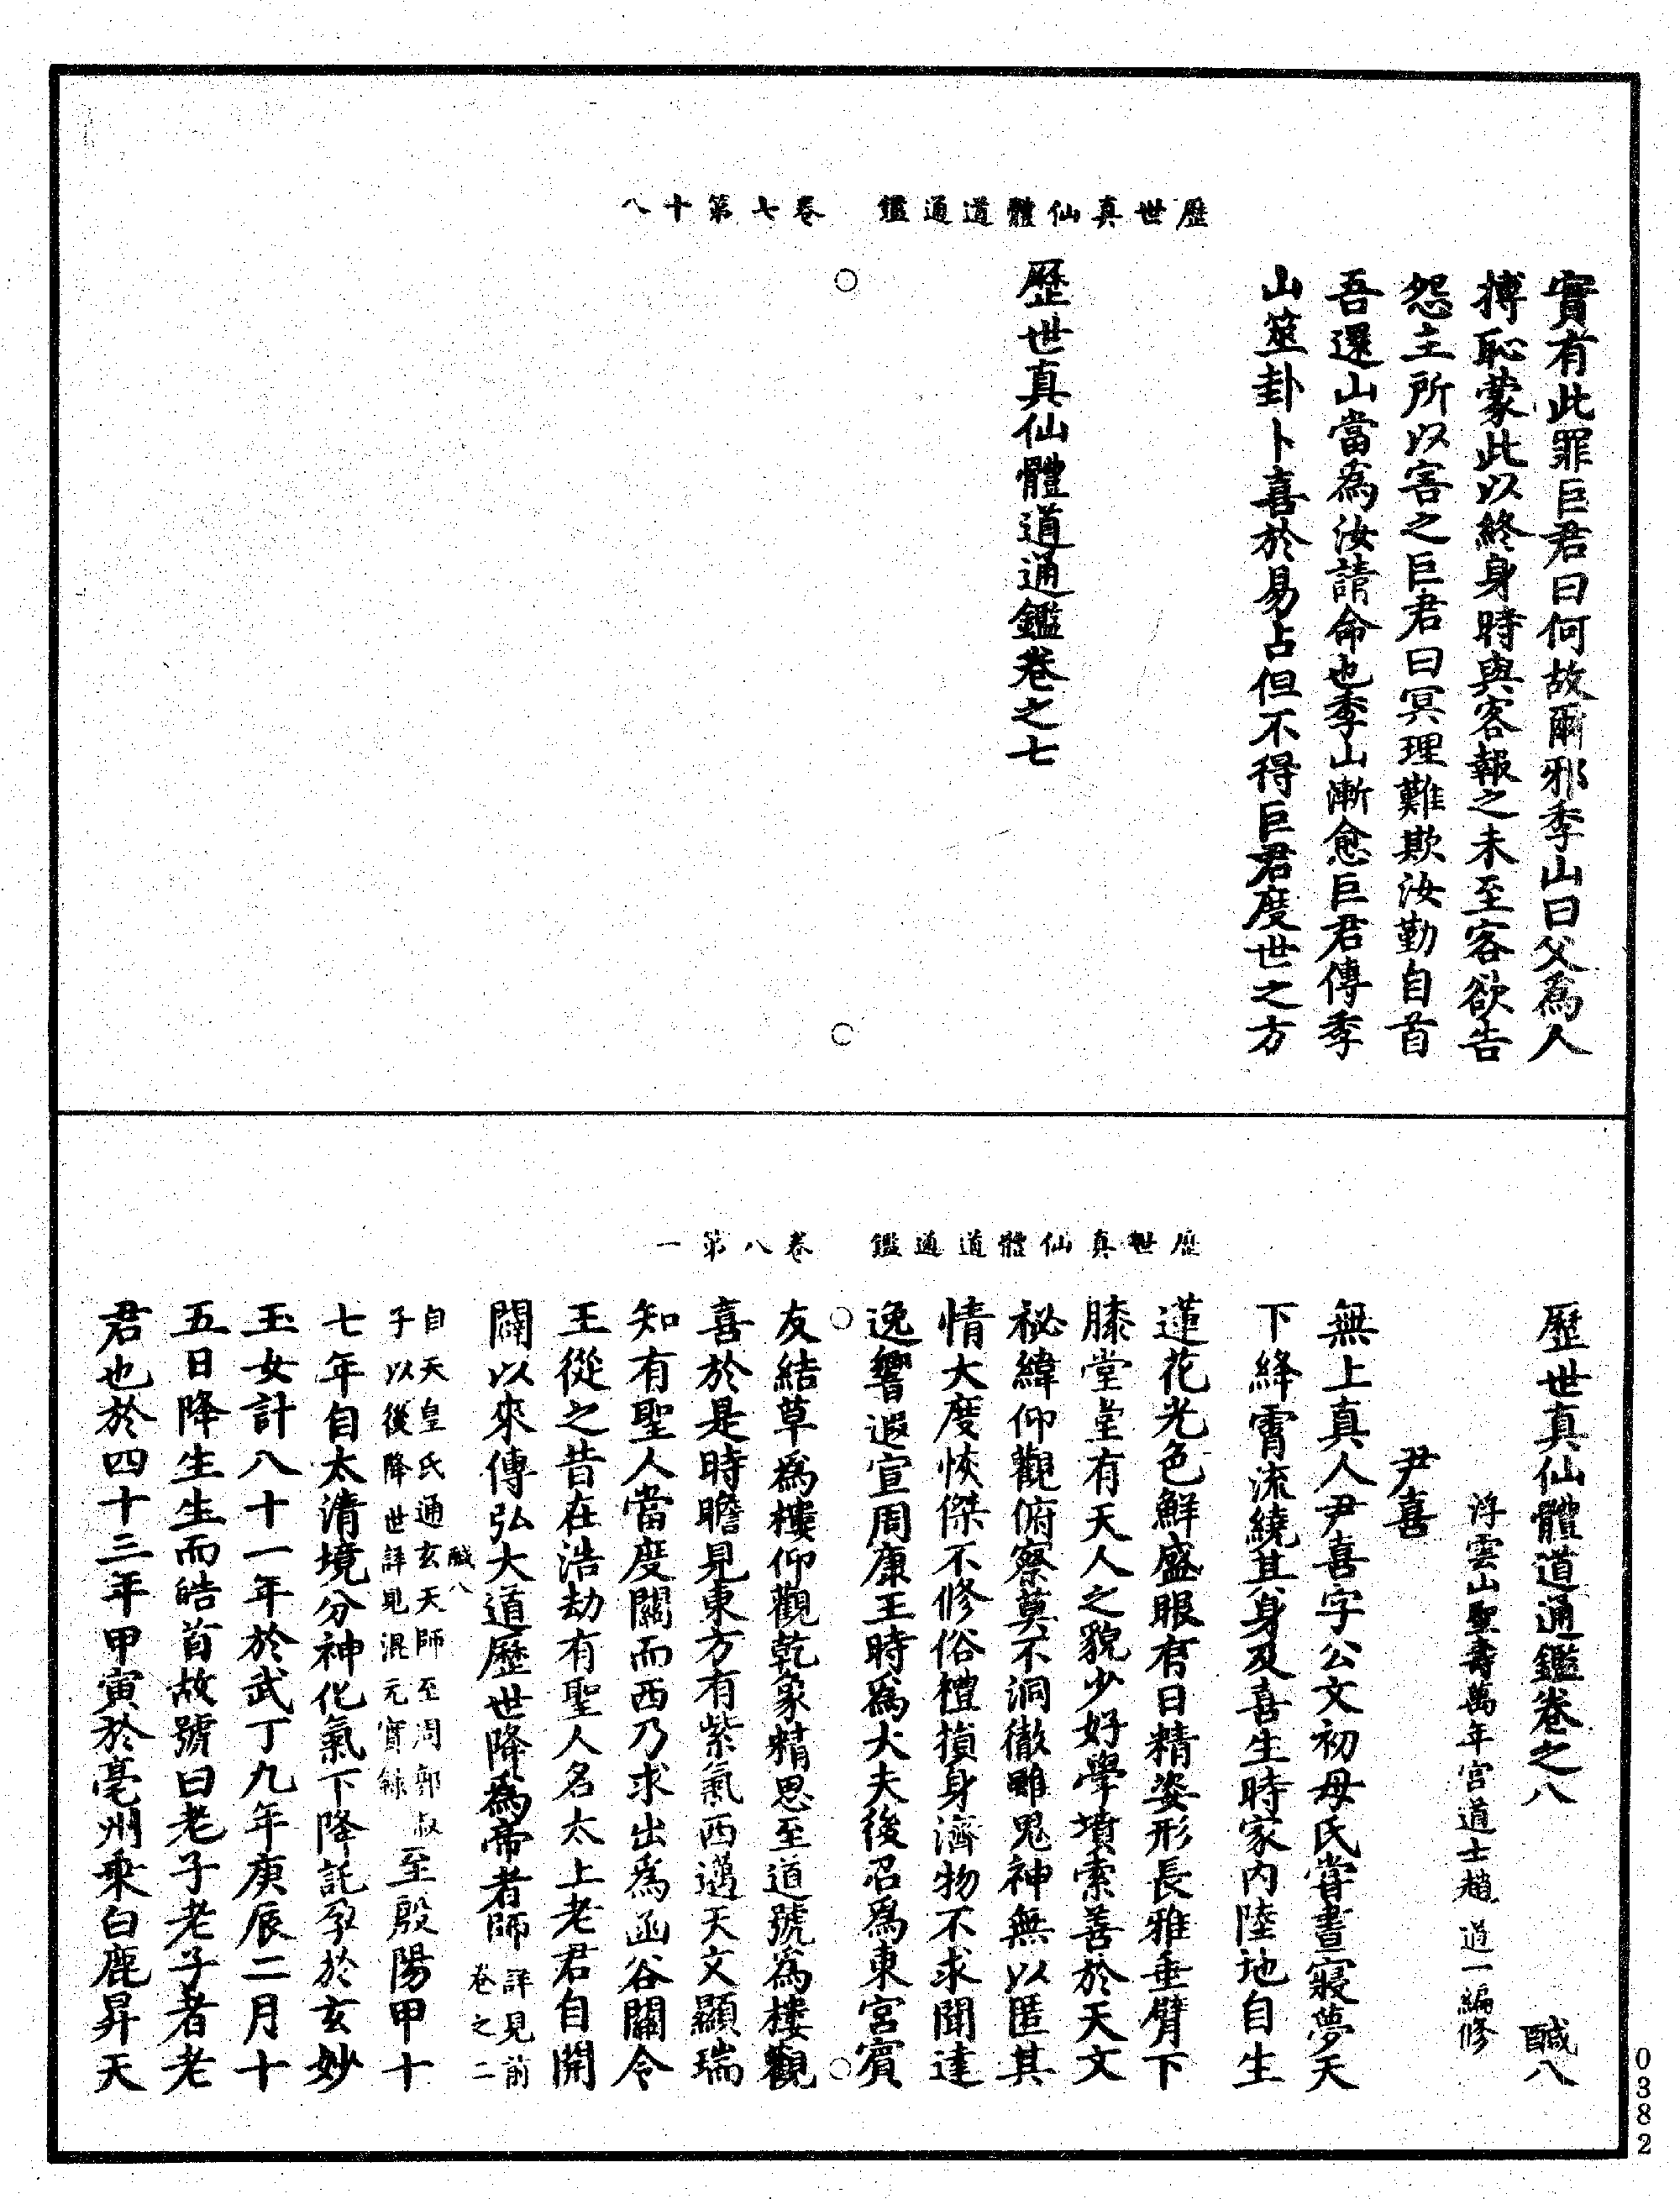 歷世真仙體道通鑑　卷七第十八
實有此罪巨君曰何故爾邪季山曰父為人
搏恥蒙此以終身時與客報之未至客欲告
怨主所以害之巨君曰冥理難欺汝勤自首
吾還山當為汝請命也季山漸愈巨君傳季
山筮卦卜喜於易占但不得巨君度世之方
歷世真仙體道通鑑卷之七
歷世真仙體道通鑑　卷八第一
歷世真仙體道通鑑卷之八　鹹八
浮雲山聖壽萬年宮道士趙道一編修
尹喜
無上真人尹喜字公文初母氏嘗晝寢夢天
下絳霄流繞其身及喜生時家內陸地自生
蓮花光色鮮盛眼有日精姿形長雅垂臂下
膝堂堂有天人之貌少好學墳索善於天文
祕緯仰觀俯察莫不洞徹雖鬼神無以匿其
情大度恢傑不修俗禮損身濟物不求聞達
逸響遐宣周康王時為大夫後召為東宮賓
友結草為樓仰觀乾象精思至道號為樓觀
喜於是時瞻見東方有紫氣西邁天文顯瑞
知有聖人當度關而西乃求出為函谷關令
王從之昔在浩劫有聖人名太上老君自開
闢以來傳弘大道歷世降為帝者師詳見前卷之二
鹹八
自天皇氏通玄天師至周郭叔子以後降世詳見混元實錄至殷陽甲十
七年自太清境分神化氣下降託孕於玄妙
玉女計八十一年於武丁九年庚辰二月十
五日降生生而皓首故號曰老子老子者老
君也於四十三年甲寅於亳州乘白鹿昇天
0382